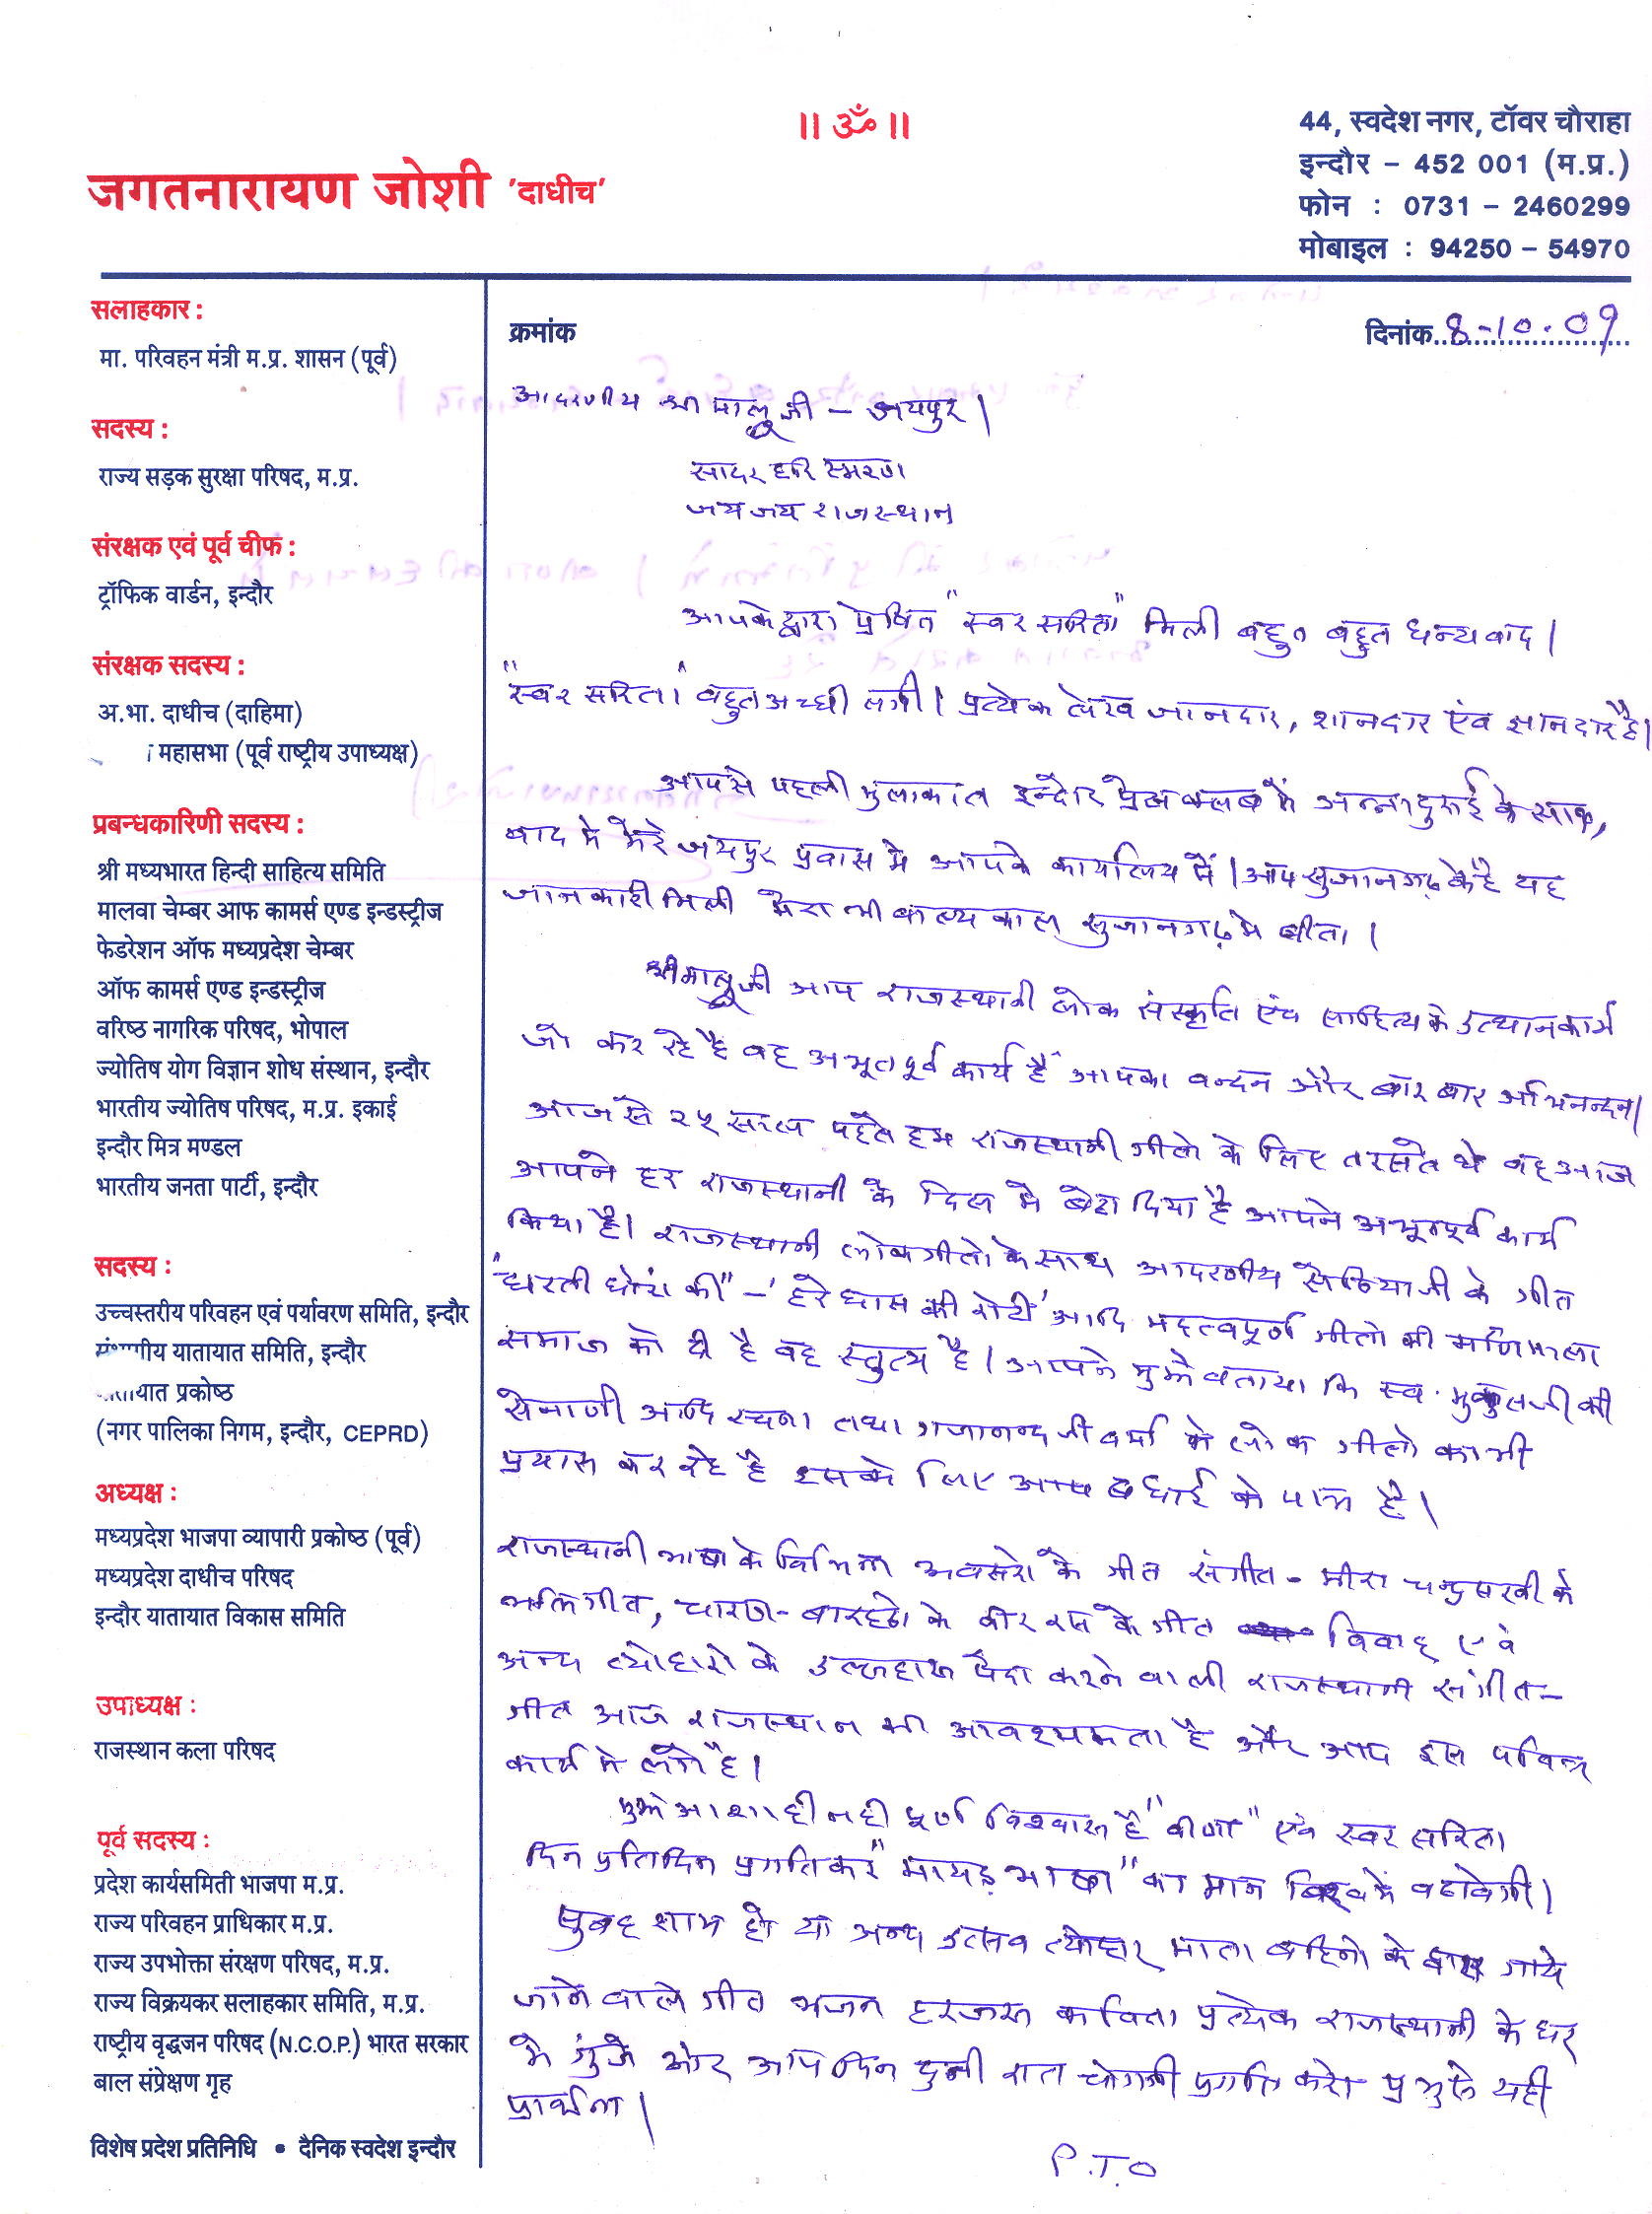 ॥ ॐ ॥
जगतनारायण जोशी 'दाधीच'
44, स्वदेश नगर, टॉवर चौराहा
इन्दौर – 452 001 (म.प्र.)
फोन : 0731 – 2460299
मोबाइल : 94250 – 54970
सलाहकार :
मा. परिवहन मंत्री म.प्र. शासन (पूर्व)
सदस्य :
राज्य सड़क सुरक्षा परिषद, म.प्र.
संरक्षक एवं पूर्व चीफ :
ट्रॉफिक वार्डन, इन्दौर
संरक्षक सदस्य :
अ.भा. दाधीच (दाहिमा)
महासभा (पूर्व राष्ट्रीय उपाध्यक्ष)
प्रबन्धकारिणी सदस्य :
श्री मध्यभारत हिन्दी साहित्य समिति
मालवा चेम्बर आफ कामर्स एण्ड इन्डस्ट्रीज
फेडरेशन ऑफ मध्यप्रदेश चेम्बर
ऑफ कामर्स एण्ड इन्डस्ट्रीज
वरिष्ठ नागरिक परिषद, भोपाल
ज्योतिष योग विज्ञान शोध संस्थान, इन्दौर
भारतीय ज्योतिष परिषद, म.प्र. इकाई
इन्दौर मित्र मण्डल
भारतीय जनता पार्टी, इन्दौर
सदस्य :
उच्चस्तरीय परिवहन एवं पर्यावरण समिति, इन्दौर
यातायात समिति, इन्दौर
प्रकोष्ठ
(नगर पालिका निगम, इन्दौर, CEPRD)
अध्यक्ष :
मध्यप्रदेश भाजपा व्यापारी प्रकोष्ठ (पूर्व)
मध्यप्रदेश दाधीच परिषद
इन्दौर यातायात विकास समिति
उपाध्यक्ष :
राजस्थान कला परिषद
पूर्व सदस्य :
प्रदेश कार्यसमिती भाजपा म.प्र.
राज्य परिवहन प्राधिकार म.प्र.
राज्य उपभोक्ता संरक्षण परिषद, म.प्र.
राज्य विक्रयकर सलाहकार समिति, म.प्र.
राष्ट्रीय वृद्धजन परिषद (N.C.O.P.) भारत सरकार
बाल संप्रेक्षण गृह
विशेष प्रदेश प्रतिनिधि • दैनिक स्वदेश इन्दौर
क्रमांक
दिनांक 8-10-09
आदरणीय श्री मालू जी – जयपुर।
सादर हरि स्मरण
जय जय राजस्थान
आपके द्वारा प्रेषित "स्वर सरिता" मिली बहुत बहुत धन्यवाद।
"स्वर सरिता" बहुत अच्छी लगी। प्रत्येक लेख जानदार, शानदार एंव ज्ञानदार है।
आपसे पहली मुलाकात इन्दौर प्रेस क्लब में अन्नादुराई के साथ,
बाद मे मेरे जयपुर प्रवास मे आपके कार्यालय में। आप सुजानगढ़ के है यह
जानकारी मिली मेरा भी बाल्यकाल सुजानगढ़ मे बीता।
श्री मालू जी आप राजस्थानी लोक संस्कृति एंव साहित्य के उत्थान कार्य
जो कर रहे है वह अभूतपूर्व कार्य है आपका वन्दन और बार बार अभिनन्दन।
आज से २५ साल पहले हम राजस्थानी गीतो के लिए तरसते थे वह आज
आपने हर राजस्थानी के दिल मे बैठा दिया है आपने अभूतपूर्व कार्य
किया है। राजस्थानी लोकगीतो के साथ आदरणीय सेठिया जी के गीत
"धरती धोरां की" – 'हरे घास की रोटी' आदि महत्वपूर्ण गीतो की मणिमाला
समाज को दी है वह स्तुत्य है। आपने मुझे बताया कि स्व. मुकुलजी की
सेनाणी आदि रचना तथा गजानन्द जी वर्मा के लोक गीतो का भी
प्रयास कर रहे है इसके लिए आप बधाई के पात्र है।
राजस्थानी भाषा के विभिन्न अवसरो के गीत संगीत – मीरा चन्द्रसखी के
भक्ति गीत, चारण – बारहठो के वीर रस के गीत विवाह एवं
अन्य त्योहारो के उल्लहास पैदा करने वाली राजस्थानी संगीत –
गीत आज राजस्थान की आवश्यकता है और आप इस पवित्र
कार्य मे लगे है।
मुझे आशा ही नही पूर्ण विश्वास है "वीणा" एंव स्वर सरिता
दिन प्रतिदिन प्रगति कर "मायड़ भाषा" का मान विश्व में बढावेगी।
सुबह शाम हो या अन्य उत्सव त्योहार माता बहिनो के गाये
जाने वाले गीत भजन हरजस कविता प्रत्येक राजस्थानी के घर
मे गुंजे और आप दिन दुनी रात चोगनी प्रगति करे प्रभु से यही
प्रार्थना।
P.T.O